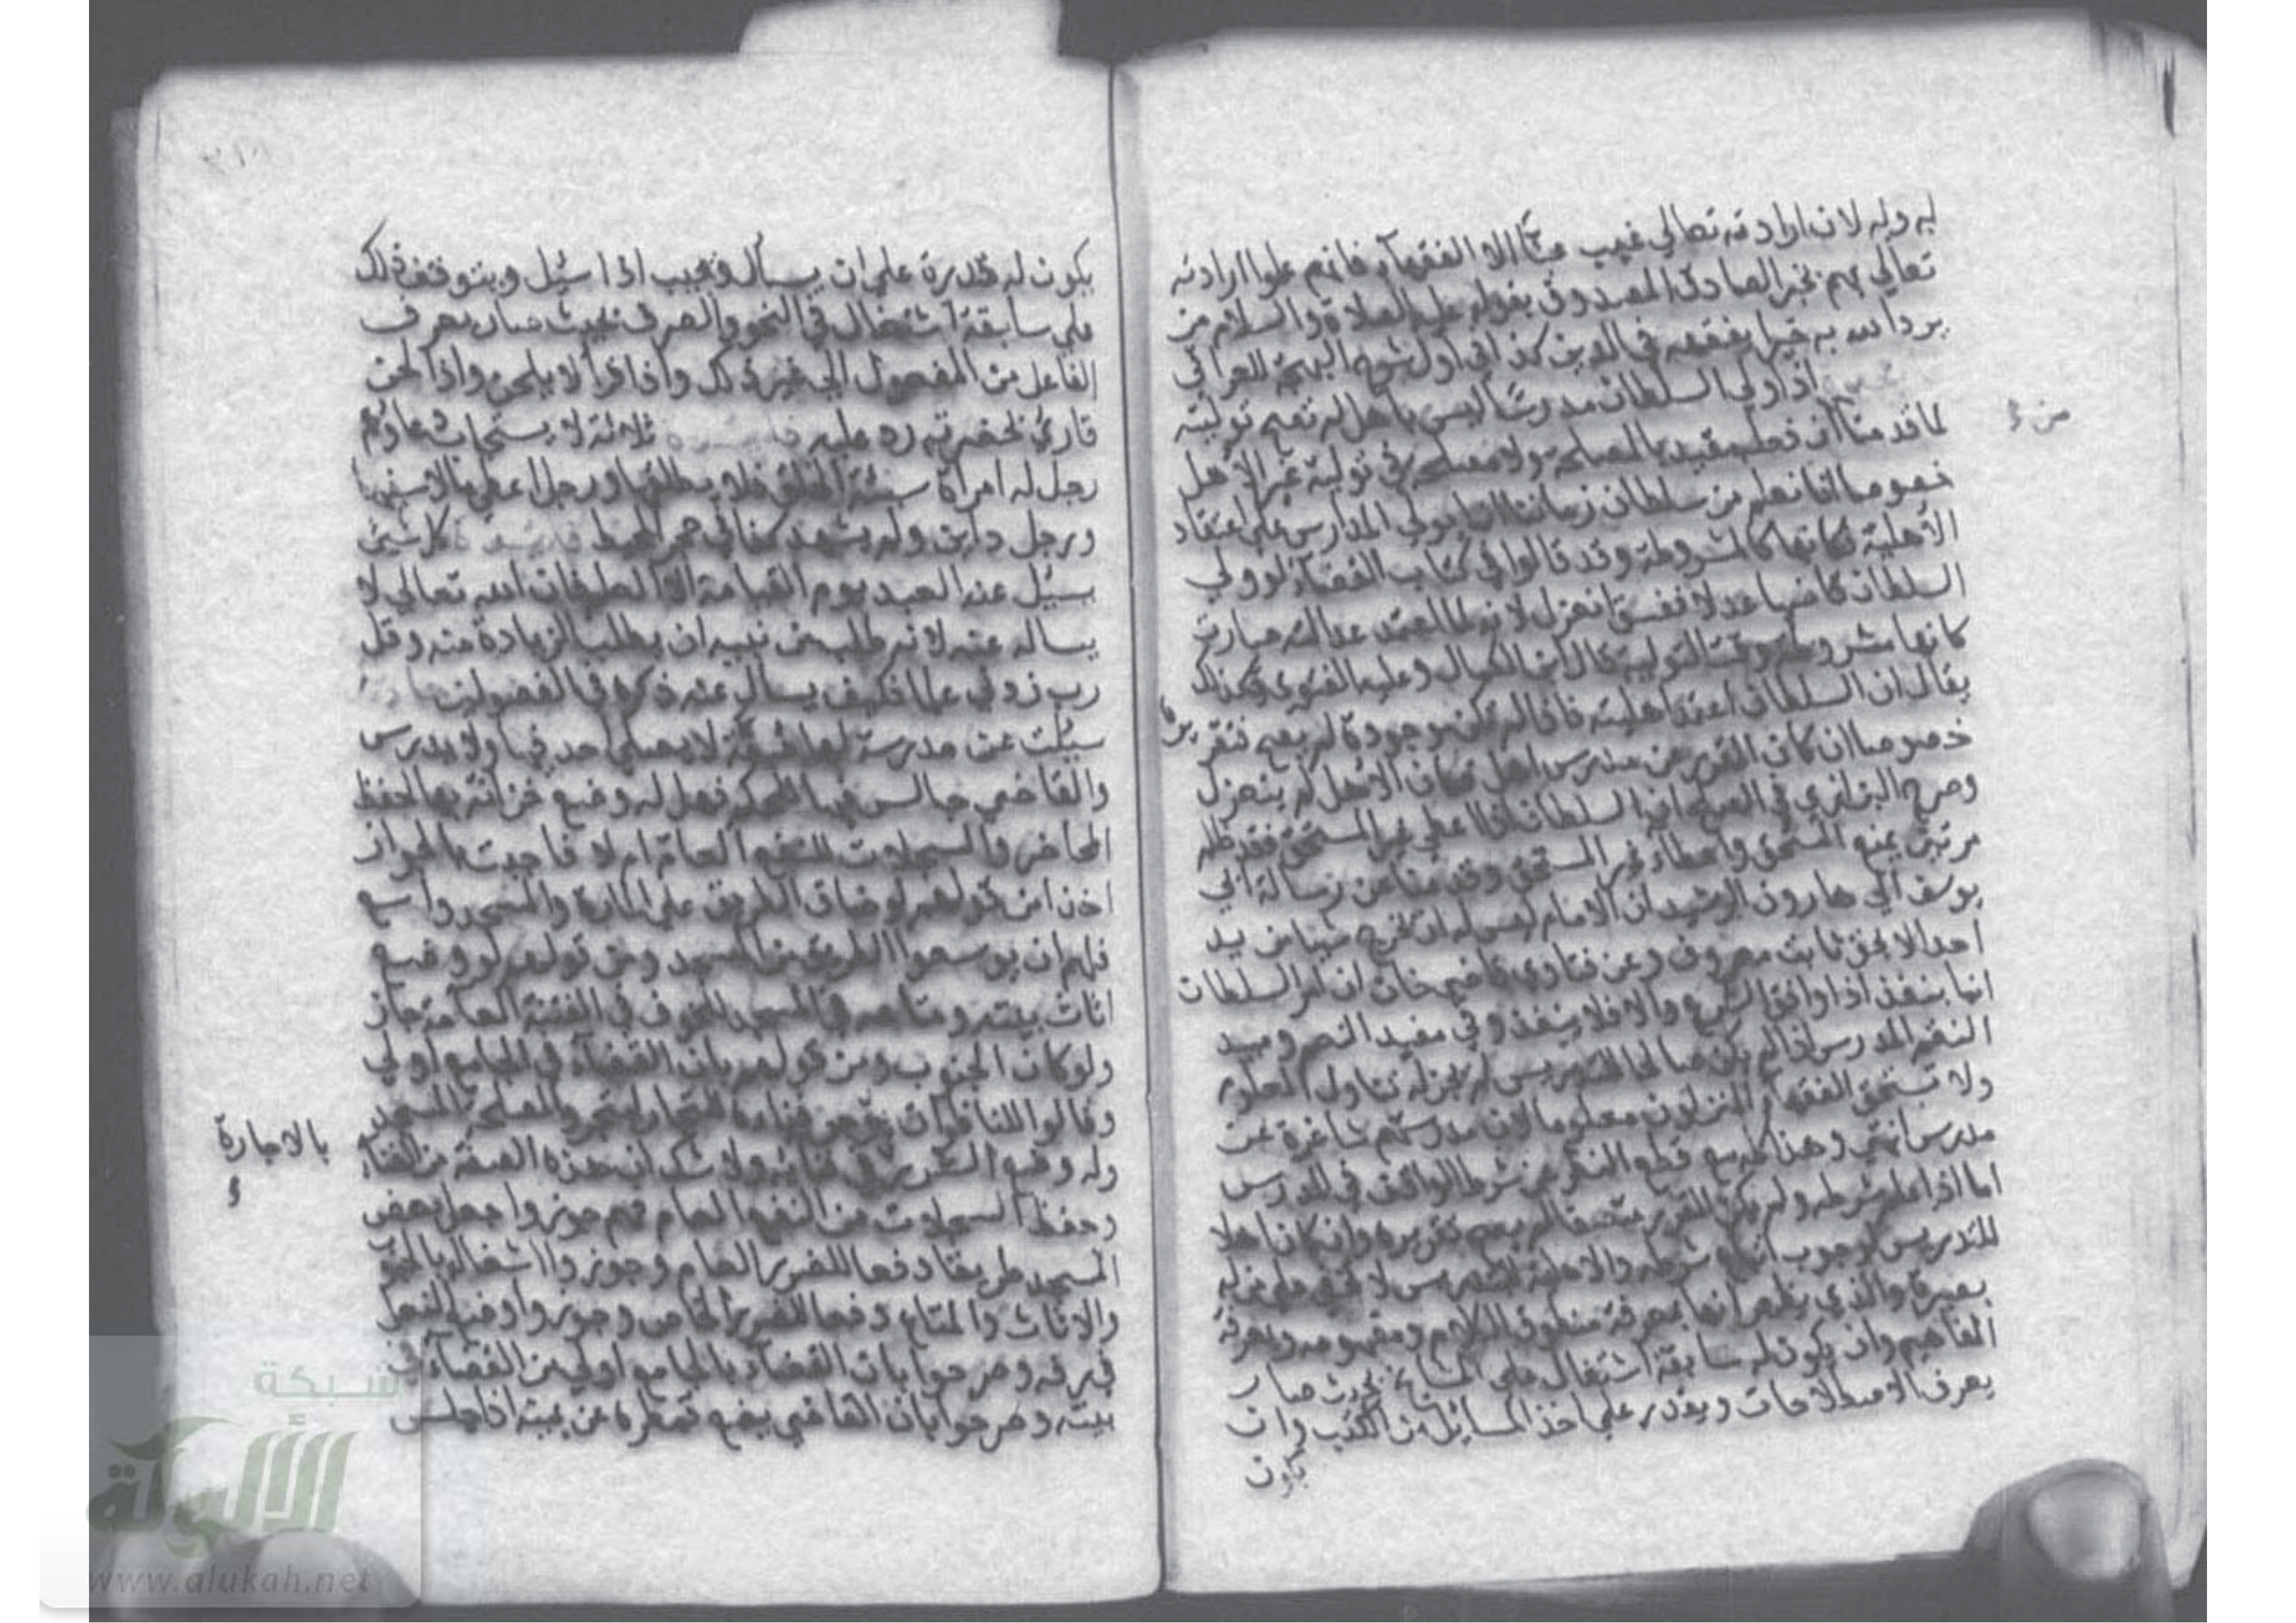 به وله لان ارادته تعالي غيب عنا الا الفقهآء فانهم علموا ارادته
تعالي بهم بخبر الصادق المصدوق بقوله عليه الصلاة والسلام من
يرد الله به خيرا يفقهه في الدين كذا في اول شرح البهجة للعراقي
اذا ولي السلطان مدرسا ليس باهل لم تصح توليته
من
لما قدمنا ان فعله مقيد بالمصلحة ولا مصلحة في تولية غير الاهل
خصوصا انا نعلم من سلطان زماننا انه انما يولي المدارس علي اعتقاد
الاهلية فكانها كالمشروطة وقد قالوا في كتاب القضاء لو ولي
السلطان قاضيا عدلا ففسق انعزل لانه لما اعتمد عدالته صارت
كانها مشروطة وقت التولية قال ابن الكمال وعليه الفتوي وكذلك
يقال ان السلطان اعتمد اهليته فاذا لم تكن موجودة لم يصح تقريره
خصوصا ان كان المقرر عن مدرس اهل فان الاهل لم ينعزل
وصرح البزازي في الصلح ان السلطان اذا اعطي غير المستحق فقد ظلم
مرتين بمنع المستحق واعطاء غير المستحق وقد قدمنا عن رسالة ابي
يوسف الي هارون الرشيد ان الامام ليس له ان يخرج شيا من يد
احد الا بحق ثابت معروف وعن فتاوي قاضيخان ان امر السلطان
انما ينفذ اذا وافق الشرع والا فلا ينفذ وفي مفيد النعم ومبيد
النقم المدرس اذا لم يكن صالحا للتدريس لم يحل له تناول المعلوم
ولا تستحق الفقهآء المنزلون معلوما لان مدرستهم شاغرة عن
مدرس انتهي وهذا كله مع قطع النظر عن شرط الواقف في المدرس
اما اذا علم شرطه ولم يكن المقرر متصفا لم يصح تقريره وان كان اهلا
للتدريس لوجوب اتباع شرطه والاهلية للتدريس لا تخفي علي من له
بصيرة والذي يظهر انها بمعرفة منطوق الكلام ومفهومه وبمعرفة
المفاهيم وان يكون له سابقة اشتغال علي المشايخ بحيث صار
يعرف الاصطلاحات ويقدر علي اخذ المسائل من الكتب وان
يكون
يكون له قدرة علي ان يسأل ويجيب اذا سئل ويتوقف ذلك
علي سابقة اشتغال في النحو والصرف بحيث صار يعرف
الفاعل من المفعول الي غير ذلك واذا قرأ لا يلحن واذا لحن
قارئ بحضرته رد عليه ثلاثة لا يستجاب دعاؤهم
رجل له امرأة سيئة الخلق فلا يطلقها ورجل اعطي ماله سفيها
ورجل داين ولم يشهد كذا في حجر المحيط كل شئ
يسئل عنه العبد يوم القيامة الا العلم فان الله تعالي لا
يساله عنه لانه طلب من نبيه ان يطلب الزيادة منه وقل
رب زدني علما فكيف يسأل عنه ذكره في الفصول
سئلت عن مدرسة بها لا يصلي احد فيها ولا يدرس
والقاضي جالس فيها للحكم فهل له وضع خزانة بها لحفظ
المحاضر والسجلات للنفع العام ام لا فاجبت بالجواز
اخذا من قولهم لو ضاق الطريق علي المارة والمسجد واسع
فلهم ان يوسعوا الطريق من المسجد ومن قولهم لو وضع
اثاث بيته ومتاعه في المسجد للخوف في الفتنة العامة جاز
ولو كان الحبوب ومن قولهم بان القضآء في الجامع اولي
وقالوا للناظر ان يؤجر فناءه للتجار ليتجروا لمصلحة المسجد
بالاجارة
وله وضع السرير في فنائه ولا شك ان هذه الصفة من الفناء
وحفظ السجلات من النفع العام فهم جوزوا جعل بعض
المسجد طريقا دفعا للضرر العام وجوزوا اشغاله بالحبوب
والاثاث والمتاع دفعا للضرر الخاص وجوزوا وضع النعل
في رفه وصرحوا بان القضاء بالجامع اولي من القضآء في
بيته وصرحوا بان القاضي يضع قمطره عن يمينه اذا جلس
شبكة
الألوكة
www.alukah.net